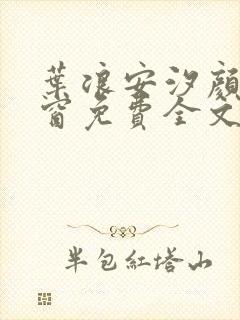 葉浪安汐顏
窗免費全文
半包紅塔山